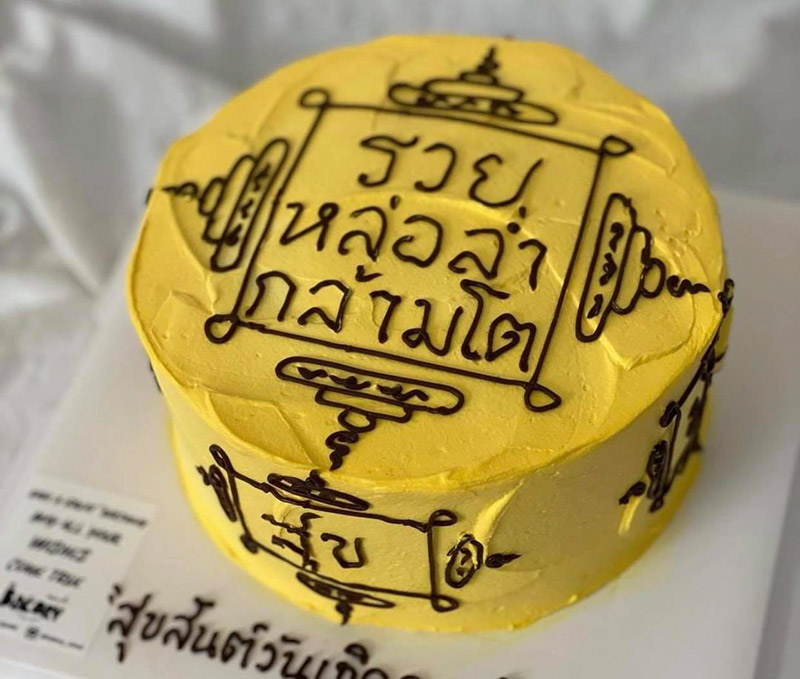 รวย
หล่อล่ำ
กล้ามโต
AND ALL YOUR
WISHES
COME TRUE
สุขสันต์วันเกิด